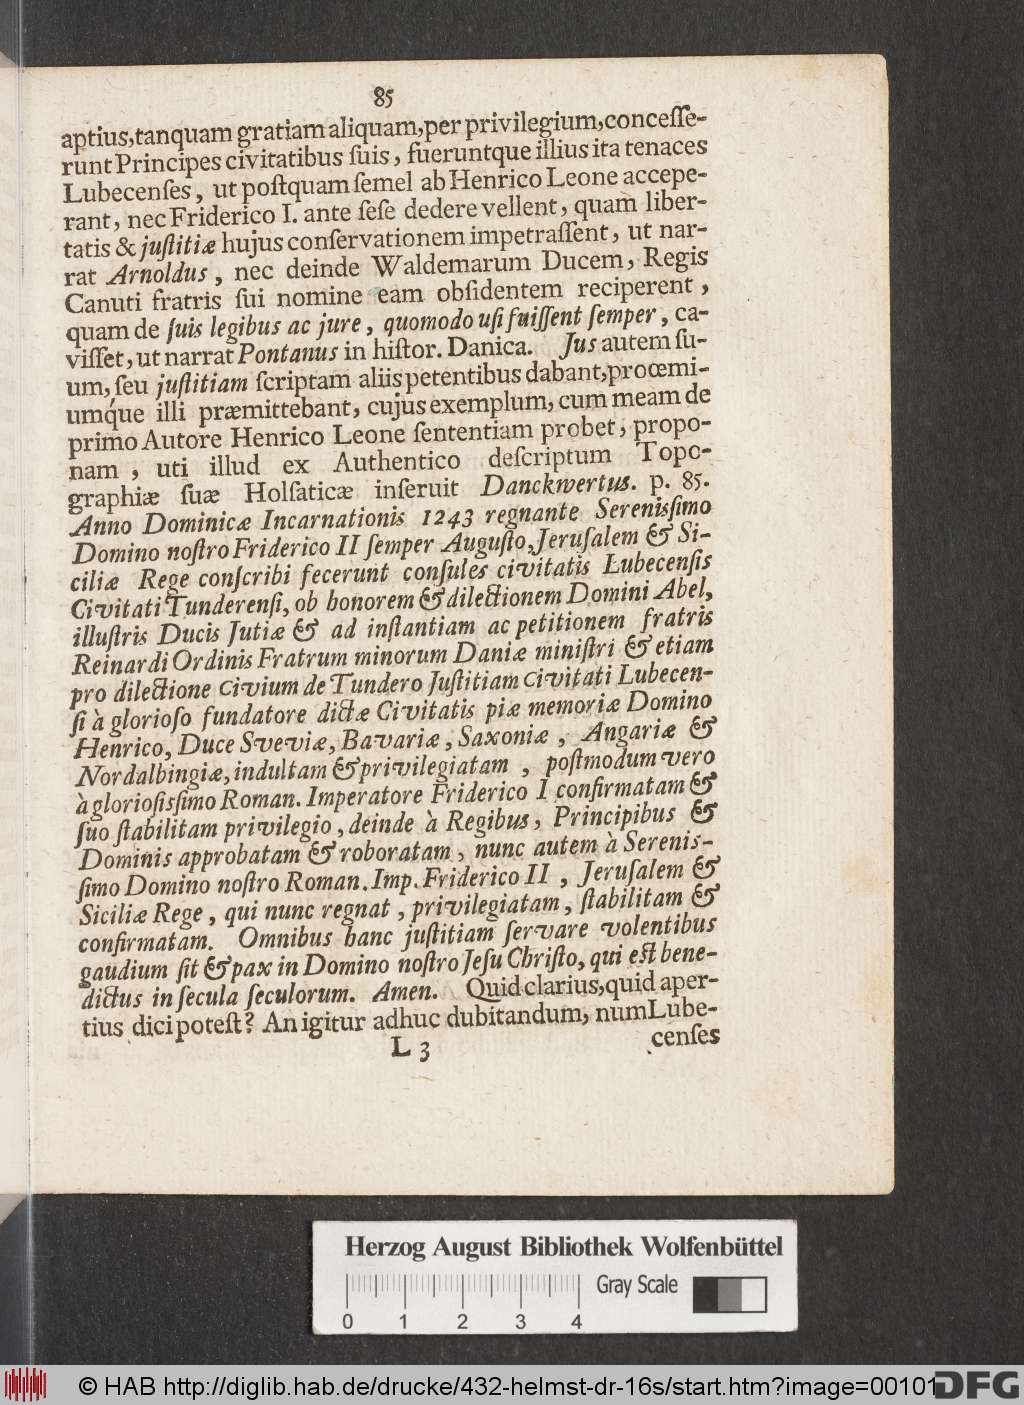 85
aptius,tanquam gratiam aliquam,per privilegium,conceſſe-
runt Principes civitatibus ſuis, fueruntque illius ita tenaces
Lubecenſes, ut poſtquam ſemel ab Henrico Leone accepe-
rant, nec Friderico I. ante ſeſe dedere vellent, quam liber-
tatis & juſtitiæ hujus conſervationem impetraſſent, ut nar-
rat Arnoldus, nec deinde Waldemarum Ducem, Regis
Canuti fratris ſui nomine eam obſidentem reciperent,
quam de ſuis legibus ac jure, quomodo uſi fuiſſent ſemper, ca-
viſſet, ut narrat Pontanus in hiſtor. Danica. Jus autem ſu-
um, ſeu juſtitiam ſcriptam aliis petentibus dabant, proœmi-
umq́ue illi præmittebant, cujus exemplum, cum meam de
primo Autore Henrico Leone ſententiam probet, propo-
nam, uti illud ex Authentico deſcriptum Topo-
graphiæ ſuæ Holſaticæ inſeruit Danckwertus. p. 85.
Anno Dominicæ Incarnationis 1243 regnante Serenisſimo
Domino noſtro Friderico II ſemper Auguſto, Jeruſalem & Si-
ciliæ Rege conſcribi fecerunt conſules civitatis Lubecenſis
Civitati Tunderenſi, ob honorem & dilectionem Domini Abel,
illuſtris Ducis Jutiæ & ad inſtantiam ac petitionem fratris
Reinardi Ordinis Fratrum minorum Daniæ miniſtri & etiam
pro dilectione Civium de Tundero Juſtitiam Civitati Lubecen-
ſi à glorioſo fundatore dictæ Civitatis piæ memoriæ Domino
Henrico, Duce Sveviæ, Bavariæ, Saxoniæ, Angariæ &
Nordalbingiæ, indultam & privilegiatam, poſtmodum vero
à glorioſisſimo Roman. Imperatore Friderico I confirmatam &
ſuo ſtabilitam privilegio, deinde à Regibus, Principibus &
Dominis approbatam & roboratam, nunc autem à Serenis-
ſimo Domino noſtro Roman. Imp. Friderico II, Jeruſalem &
Siciliæ Rege, qui nunc regnat, privilegiatam, ſtabilitam &
confirmatam. Omnibus hanc juſtitiam ſervare volentibus
gaudium ſit & pax in Domino noſtro Jeſu Chriſto, qui eſt bene-
dictus in ſecula ſeculorum. Amen. Quid clarius, quid aper-
tius dici poteſt? An igitur adhuc dubitandum, num Lube-
L 3 cenſes
Herzog August Bibliothek Wolfenbüttel
Gray Scale
0 1 2 3 4
© HAB http://diglib.hab.de/drucke/432-helmst-dr-16s/start.htm?image=00101
DFG